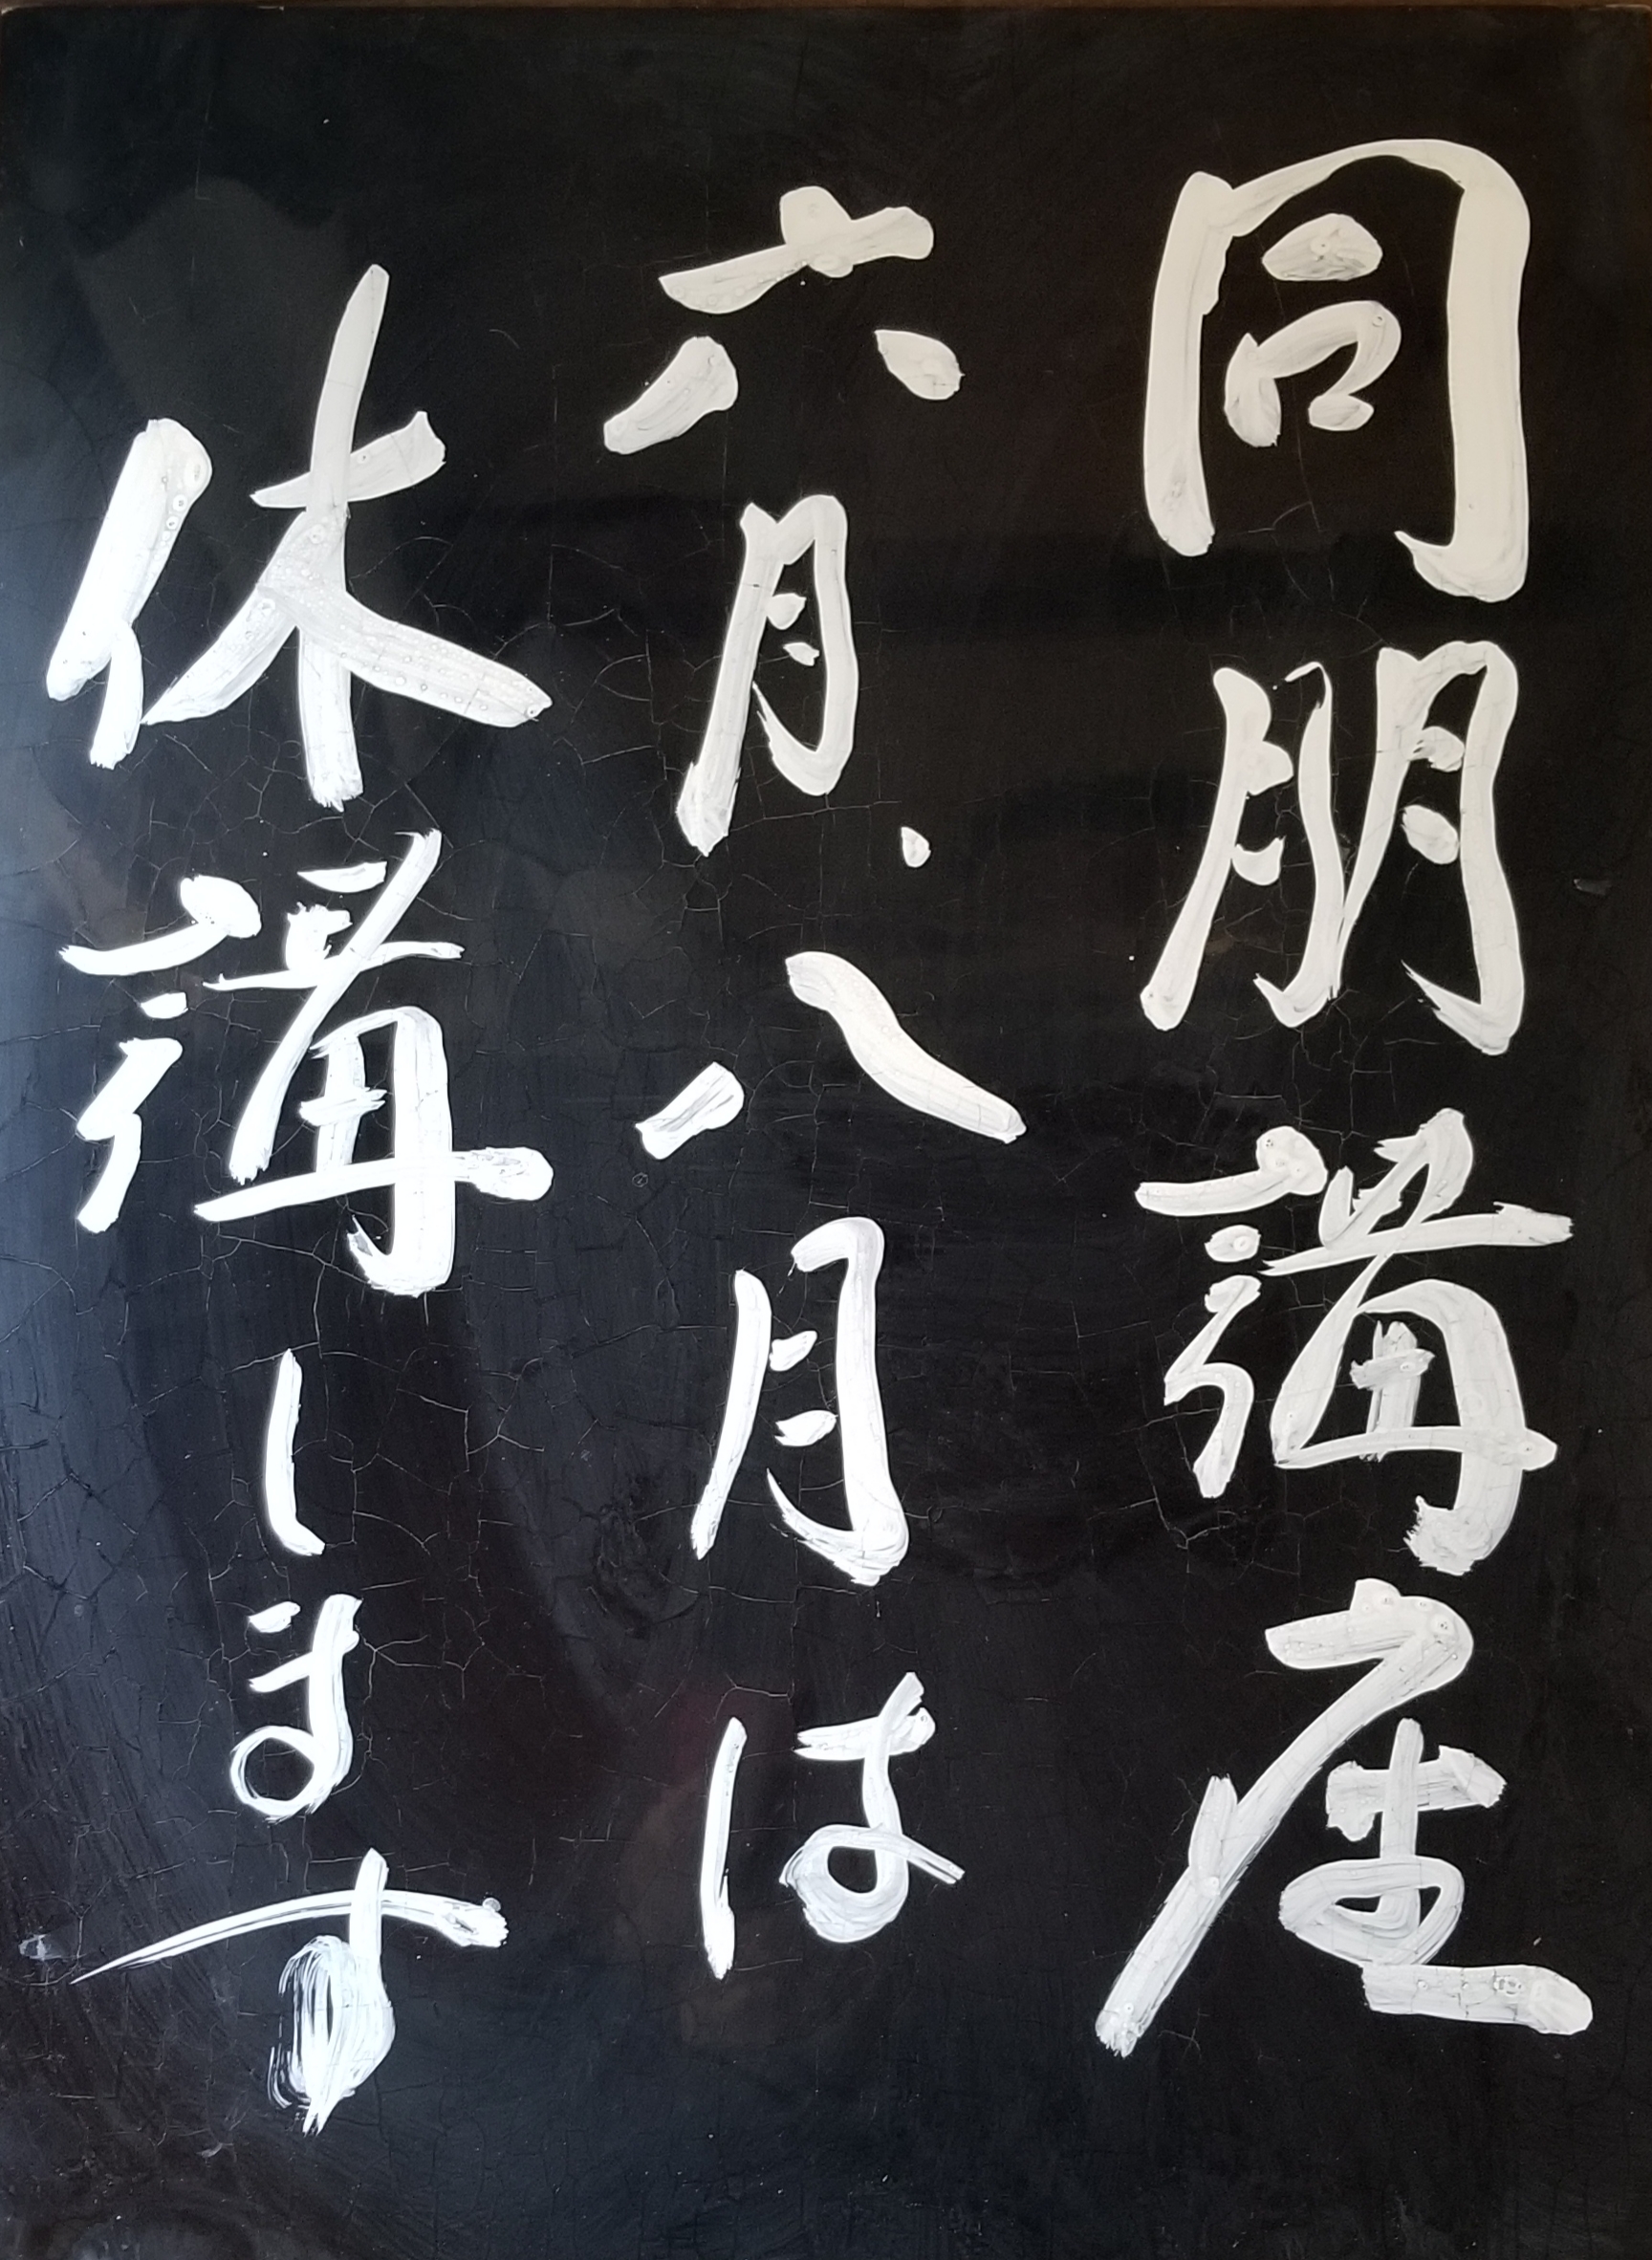 同朋講座
六月・八月は
休講します